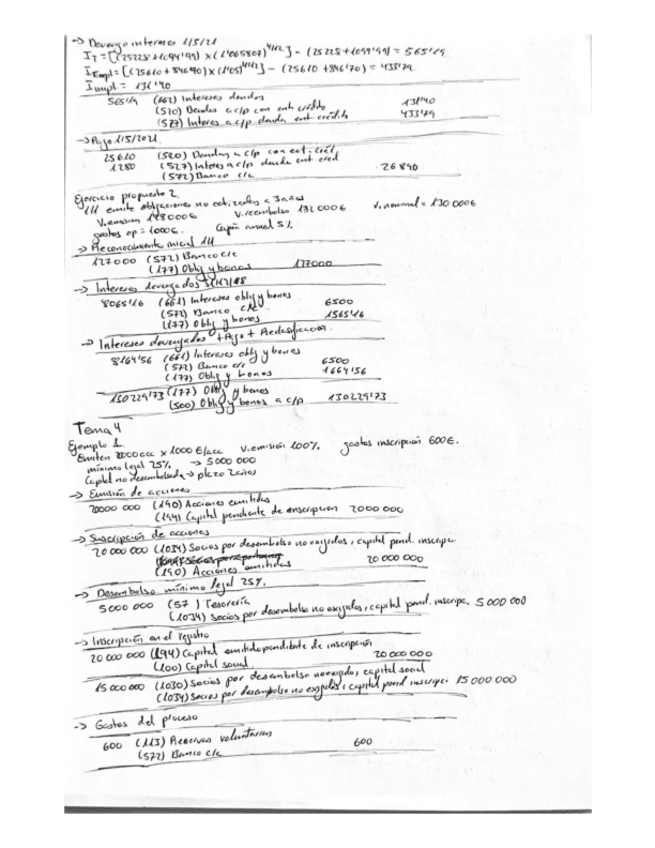 → Devengo intereses 1/5/21
I_T = [(25228 + 1094'99) x (1'065807)^4/12] - (25228 + 1094'99) = 565'19.
I Empl = [(25610 + 846'70) x (1'05)^4/12] - (25610 + 846'70) = 433'79.
I impl = 131'40
565'19 (662) Intereses deudas
(520) Deudas a c/p con ent crédito 131'40
(527) Interes a c/p deuda ent. crédito 433'79
→ Pago 1/5/2021
25610 (520) Deudas a c/p con ent. créd.
1280 (527) Interes a c/p deuda ent cred
(572) Banco c/c 26890
Ejercicio propuesto 2.
1/1 emite obligaciones no cotizadas a 3 años
V. emisión 128000€ V. reembolso 132000€. V. nominal = 130000€
gastos op = 1000€. Cupón anual 5%
→ Reconocimiento inicial 1/1
127000 (572) Banco c/c
(177) Oblig y bonos 127000
→ Intereses devengados 31/12/
8065'16 (661) Intereses oblig y bonos
(572) Banco c/c 6500
(177) Oblig y bonos 1565'16
→ Intereses devengados + Pago + Reclasificación.
8164'56 (661) Intereses oblig y bonos
(572) Banco c/c 6500
(177) Oblig y bonos 1664'56
130229'73 (177) Oblig y bonos
(500) Oblig y bonos a c/p 130229'73
Tema 4
Ejemplo 1
Emiten 20000 acc x 1000 €/acc V. emisión 100%. gastos inscripción 600€.
mínimo legal 25%. → 5000 000
Capital no desembolsado → plazo 2 años
→ Emisión de acciones
20000 000 (190) Acciones emitidas
(194) Capital pendiente de inscripción 2000 000
→ Suscripción de acciones
20 000 000 (1034) Socios por desembolso no exigidos, capital pend. inscripc.
(190) Acciones emitidas 20 000 000
→ Desembolso mínimo legal 25%.
5000 000 (57 ) Tesorería
(1034) Socios por desembolso no exigidos, capital pend. inscripc. 5 000 000
→ Inscripción en el registro
20 000 000 (194) Capital emitido pendiente de inscripción
(100) Capital social 20 000 000
15 000 000 (1030) Socios por desembolso no exigido, capital social
(1034) Socios por desembolso no exigidos, capital pend inscripc 15 000 000
→ Gastos del proceso
600 (113) Reservas voluntarias
(572) Banco c/c 600